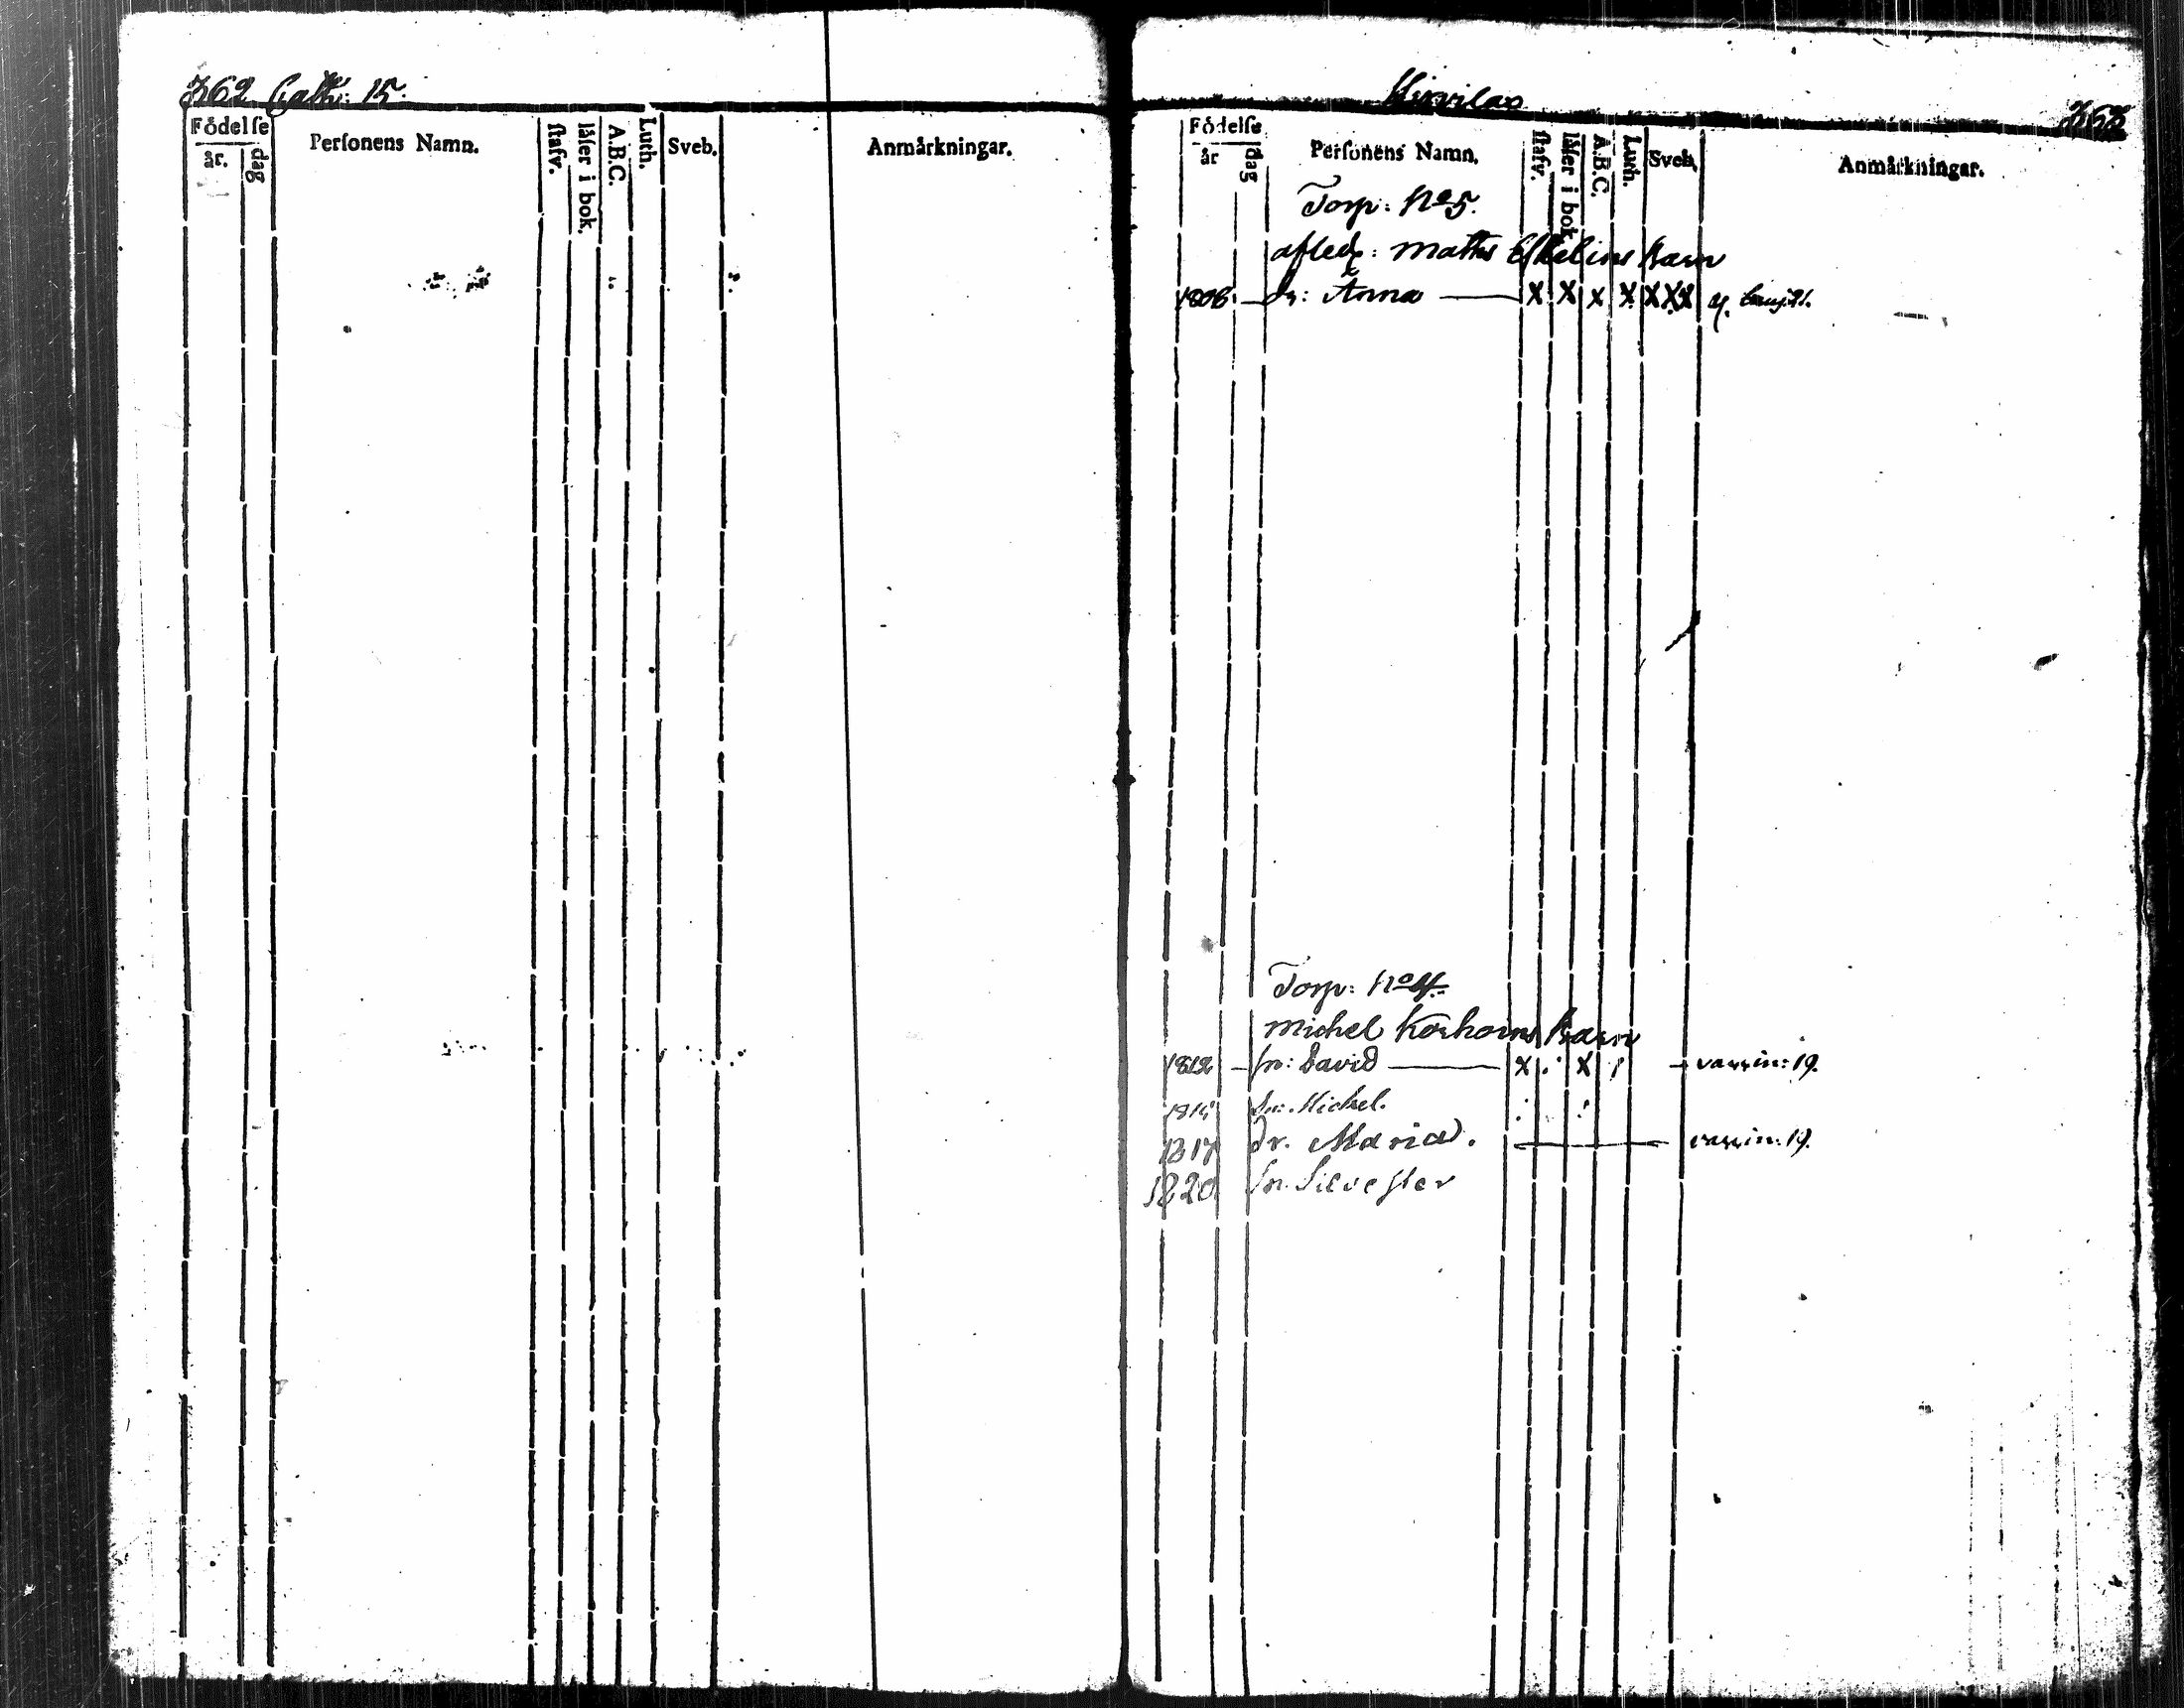 362 Cath: 15.
Födelse
år. dag
Personens Namn.
stafv.
låser i bok.
A.B.C.
Luth.
Sveb.
Anmårkningar.
Kirvilax
363
Födelse
år dag
Personens Namn.
stafv.
låser i bok
A.B.C.
Luth.
Sveb.
Anmårkningar.
Torp: No 5.
afled: Matts Eskelins Barn
1808 dr: Anna X X X X X X X
Torp: No
Michel Korhoins Barn
1812 sn: David X X vaxcin: 19.
181 Sn: Michel.
1817 dr. Maria. vaxcin: 19.
1820 Sn. Silvester